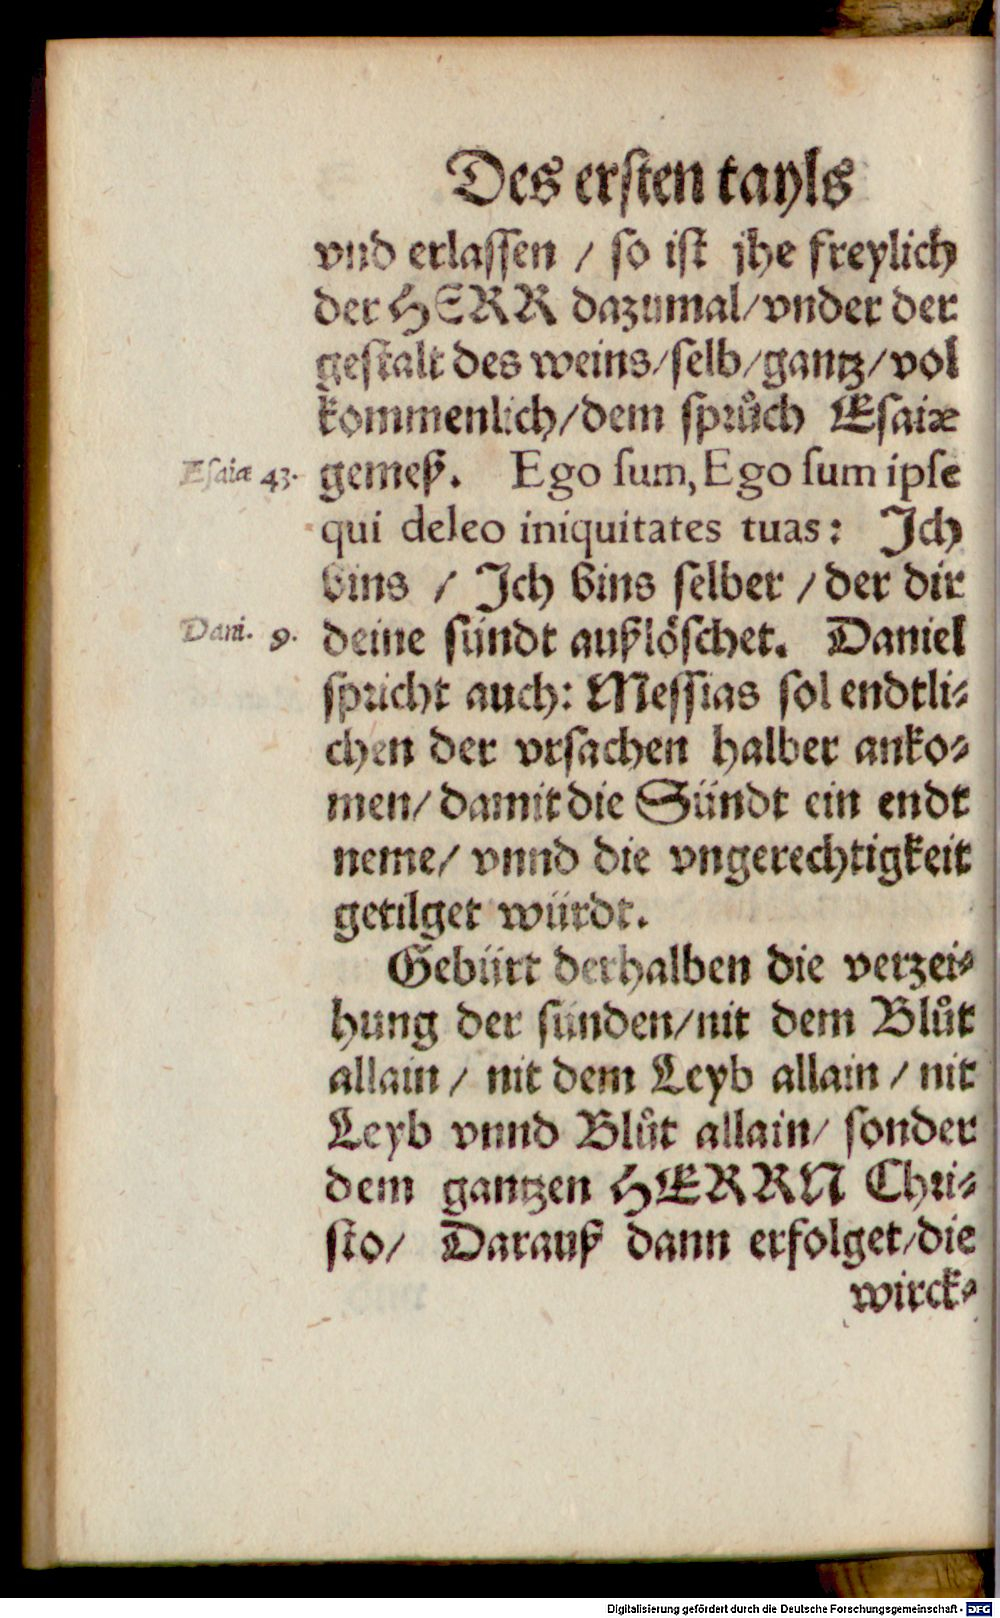 Des ersten tayls
vnd erlassen / so ist jhe freylich
der HERR dazumal/vnder der
gestalt des weins/selb/gantz/vol
kommenlich/dem sprůch Esaiæ
Esaiæ 43. gemeß. Ego sum, Ego sum ipse
qui deleo iniquitates tuas: Ich
bins / Ich bins selber / der dir
Dani. 9. deine sündt außlöschet. Daniel
spricht auch: Messias sol endtli-
chen der vrsachen halber anko-
men/ damit die Sündt ein endt
neme/ vnnd die vngerechtigkeit
getilget würdt.
Gebürt derhalben die verzei-
hung der sünden/nit dem Blůt
allain / nit dem Leyb allain / nit
Leyb vnnd Blůt allain/ sonder
dem gantzen HERRN Chri-
sto/ Darauß dann erfolget/die
wirck-
Digitalisierung gefördert durch die Deutsche Forschungsgemeinschaft - DFG